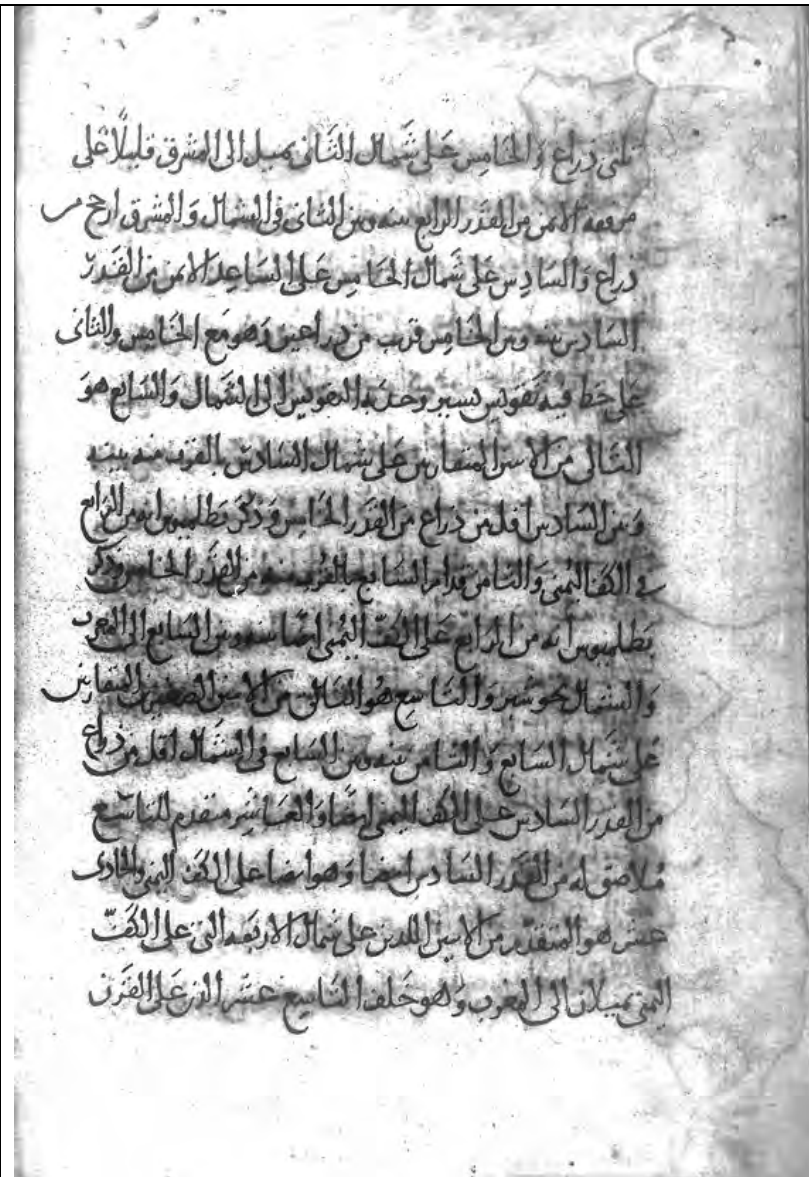 ثلثى ذراع وَالخَامِس عَلى شَمال الثَانى يميل الى المشرق قليلًا عَلى
مرفقه الايمن من القَدَر الرابع بينه وبين الثانى فى الشمال وَالمشرق ارجح من
ذراع وَالسَادِس عَلى شمال الخَامِس عَلى السَاعِد الايمن من القَدر
السَادِس بينه وبين الخَامِس قريب من ذراعين وَهو مَع الخَامِس والثانى
عَلى خط فيه تقويس يسير وحدبة التقويس الى الشمال وَالسَابع هوَ
التَالى من الاثنين المتقاربين عَلى شمال السَادِس بالقرب منه بينه
وَبين السَادِس اقل من ذراع من القَدر الخَامِس وَذكر بَطلميوس انه من الرَابع
فى الكف اليُمنى وَالثامن قدام السَابع بالقرب منه ومن القَدَر الخَامِس وَذكر
بَطلميوس أنه من الرابع عَلى الكَفّ اليُمنى ايضًا بينه وبين السَابع الى المغرب
وَالشمال نحو شبر وَالتَاسِع هُوَ التَالى من الاثنين الصَغيرين المتقاربين
عَلى شمال السَابع وَالثامن بينه وبين السَابع فى الشمَال اقل من ذراع
من القدر السَادِس عَلى الكف اليمنى ايضًا وَالعَاشِر متقدم للتاسِع
مُلاصق له من القَدَر السَادِس ايضا وَهو ايضا على الكَف اليمنى والحادى
عشر هو المتقدّم من الاثنين اللذين على شمال الاربَعه التى على الكَفّ
اليمنى يميلان الى المغرب وَهو خَلف التاسِع عشر الذى عَلى القَرن